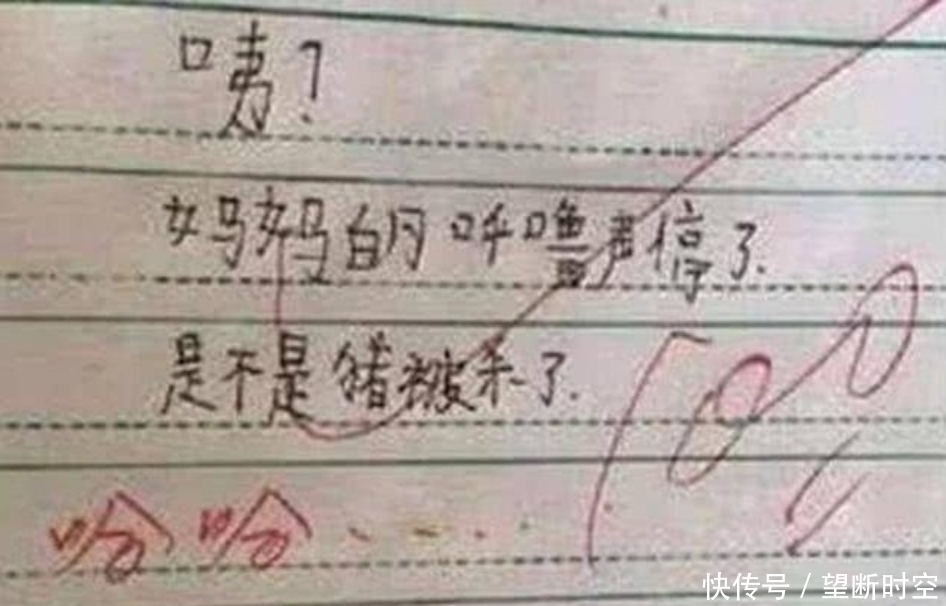 咦?
妈妈的呼噜声停了.
是不是猪被杀了.
100
哈哈....
快传号 / 望断时空